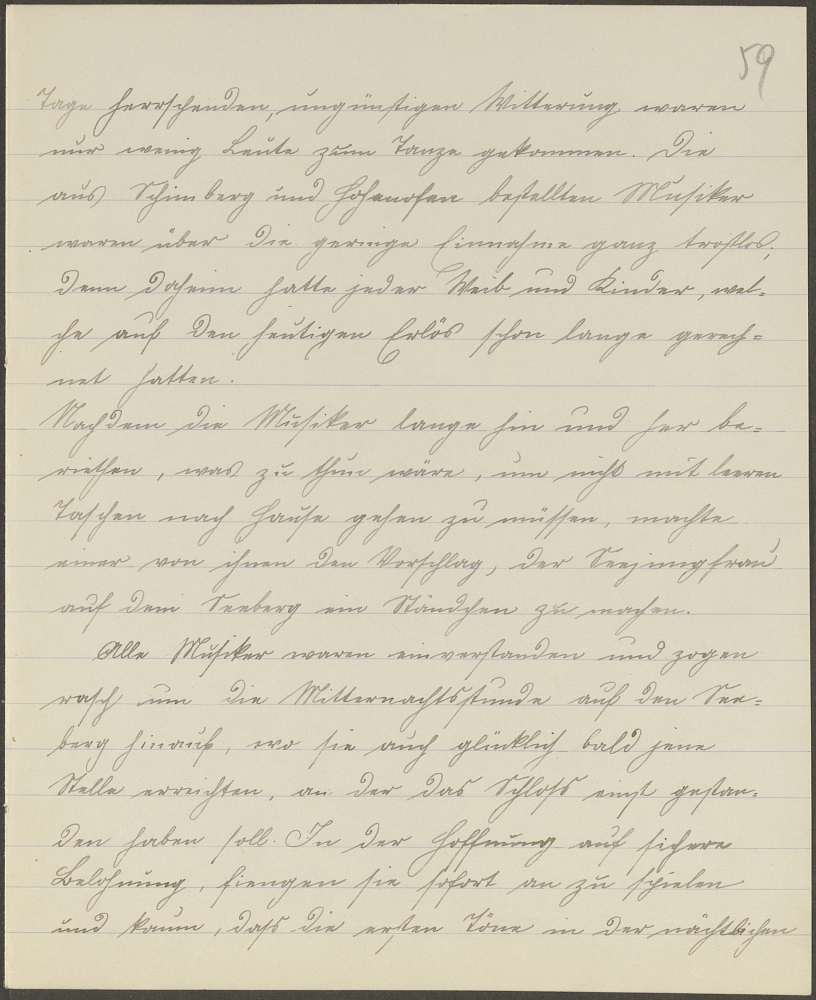 59
Tage herrschenden, ungünstigen Witterung waren
nur wenig Leute zum Tanze gekommen. Die
aus Schimberg und Hohenofen bestellten Musiker
waren über die geringe Einnahme ganz trostlos;
denn daheim hatte jeder Weib und Kinder, wel-
che auf den heutigen Erlös schon lange gerech-
net hatten.
Nachdem die Musiker lange hin und her be-
riethen, was zu thun wäre, um nicht mit leeren
Taschen nach Hause gehen zu müssen, machte
einer von ihnen den Vorschlag, der Seejungfrau
auf dem Seeberg ein Ständchen zu machen.
Alle Musiker waren einverstanden und zogen
rasch um die Mitternachtsstunde auf den See-
berg hinauf, wo sie auch glücklich bald jene
Stelle erreichten, an der das Schloss einst gestan-
den haben soll. In der Hoffnung auf sichere
Belohnung, fiengen sie sofort an zu spielen
und kaum, dass die ersten Töne in der nächtlichen